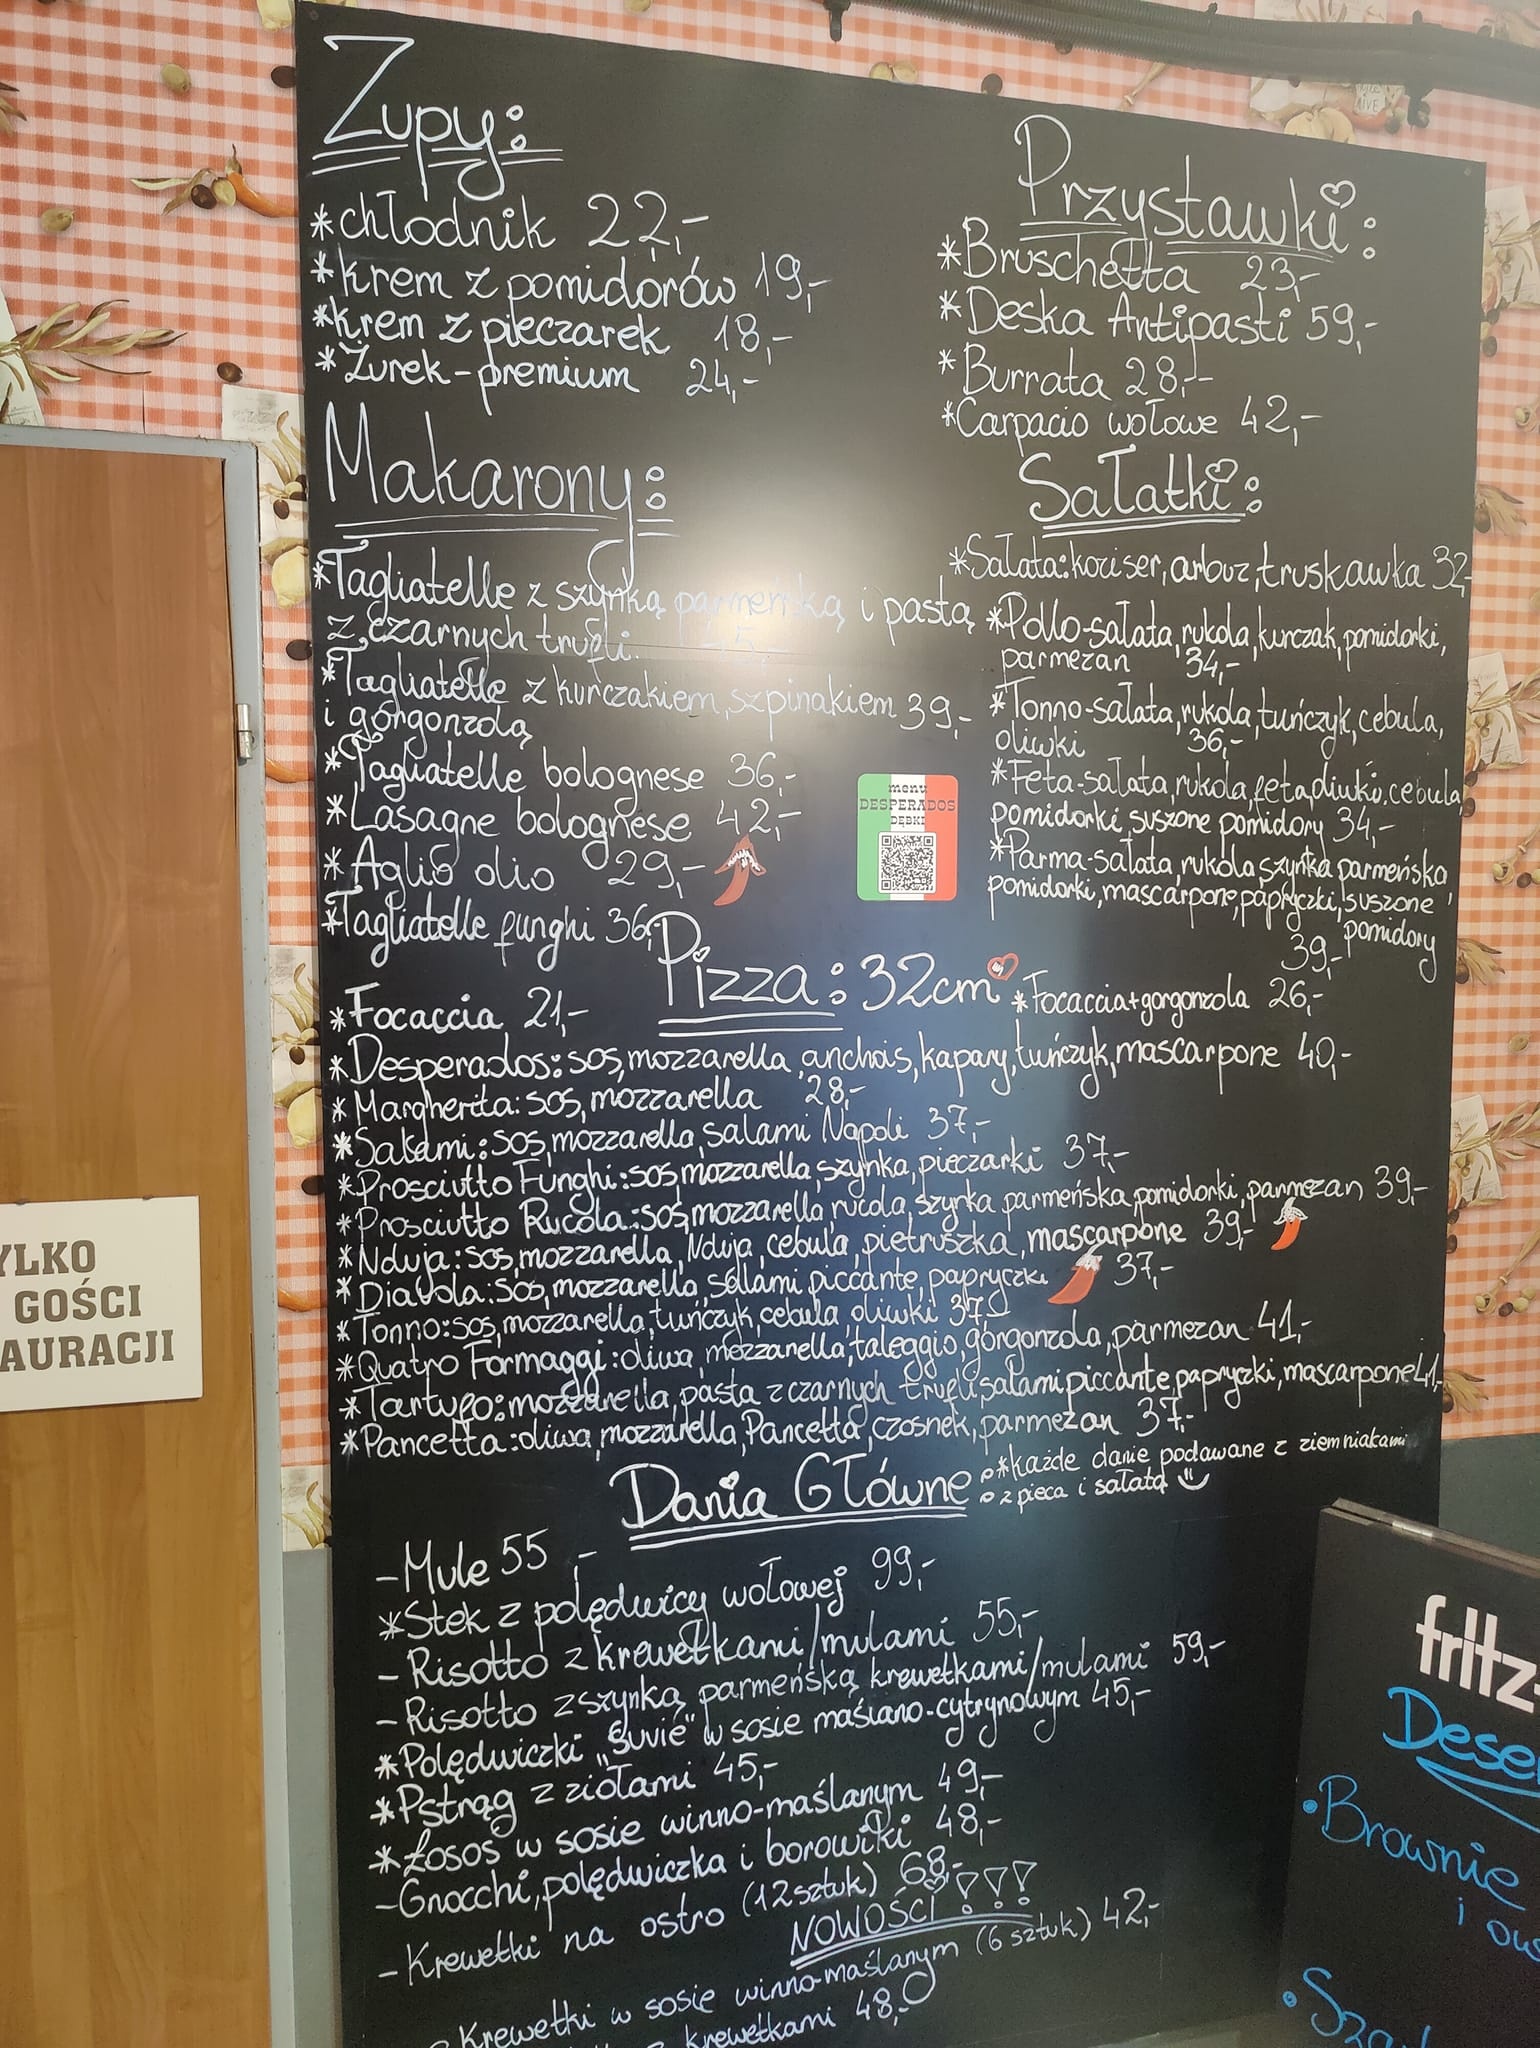 Zupy:
*chłodnik 22,-
*krem z pomidorów 19,-
*krem z pieczarek 18,-
*Żurek-premium 24,-
Przystawki:
*Bruschetta 23,-
*Deska Antipasti 59,-
*Burrata 28,-
*Carpacio wołowe 42,-
Makarony:
*Tagliatelle z szynką parmeńską i pastą
z czarnych trufli. 45,-
*Tagliatelle z kurczakiem, szpinakiem 39,-
i gorgonzolą
*Tagliatelle bolognese 36,-
*Lasagne bolognese 42,-
*Aglio olio 29,-
*Tagliatelle funghi 36,-
Sałatki:
*Sałata: kozi ser, arbuz, truskawka 32,-
*Pollo-sałata, rukola, kurczak, pomidorki,
parmezan 34,-
*Tonno-sałata, rukola, tuńczyk, cebula,
oliwki 36,-
*Feta-sałata, rukola, feta, oliwki, cebula
pomidorki, suszone pomidory 34,-
*Parma-sałata, rukola, szynka parmeńska
pomidorki, mascarpone, papryczki, suszone
pomidory
39,-
menu
DESPERADOS
DĘBKI
Pizza: 32cm
*Focaccia 21,-
*Focaccia+gorgonzola 26,-
*Desperados: sos, mozzarella, anchois, kapary, tuńczyk, mascarpone 40,-
*Margherita: sos, mozzarella 28,-
*Salami: sos, mozzarella, salami Napoli 37,-
*Prosciutto Funghi: sos mozzarella, szynka, pieczarki 37,-
*Prosciutto Rucola: sos, mozzarella, rucola, szynka parmeńska, pomidorki, parmezan 39,-
*Nduja: sos, mozzarella, Nduja, cebula, pietruszka, mascarpone 39,-
*Diavola: sos, mozzarella, salami piccante, papryczki 37,-
*Tonno: sos, mozzarella, tuńczyk, cebula, oliwki 37,-
*Quatro Formaggi: oliwa, mozzarella, taleggio, gorgonzola, parmezan 41,-
*Tartufo: mozzarella, pasta z czarnych trufli, salami piccante, papryczki, mascarpone 41,-
*Pancetta: oliwa, mozzarella, Pancetta, czosnek, parmezan 37,-
Dania Główne: *każde danie podawane z ziemniakami
z pieca i sałatą
-Mule 55,-
*Stek z polędwicy wołowej 99,-
-Risotto z krewetkami/mulami 55,-
-Risotto z szynką parmeńską krewetkami/mulami 59,-
*Polędwiczki „Suvie" w sosie maślano-cytrynowym 45,-
*Pstrąg z ziołami 45,-
*Łosoś w sosie winno-maślanym 49,-
-Gnocchi, polędwiczka i borowiki 48,-
-Krewetki na ostro (12 sztuk) 68,-
NOWOŚCI!!!
Krewetki w sosie winno-maślanym (6 sztuk) 42,-
z krewetkami 48,-
YLKO
GOŚCI
AURACJI
fritz-
Dese
•Brownie
i ow